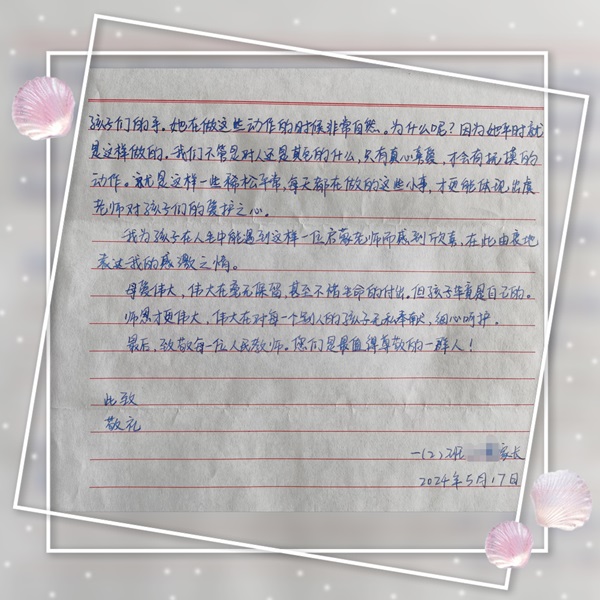 孩子们的手。她在做这些动作的时候非常自然。为什么呢？因为她平时就
是这样做的。我们不管是对人还是其它的什么，只有真心真爱，才会有抚摸的
动作。就是这样一些稀松平常，每天都在做的这些小事，才更能体现出虞
老师对孩子们的爱护之心。
我为孩子在人生中能遇到这样一位启蒙老师而感到欣喜，在此由衷地
表达我的感激之情。
母爱伟大，伟大在毫无保留，甚至不惜生命的付出。但孩子毕竟是自己的。
师恩才更伟大，伟大在对每一个别人的孩子无私奉献，细心呵护。
最后，致敬每一位人民教师。您们是最值得尊敬的一群人！
此致
敬礼
一(2)班 家长
2024年5月17日